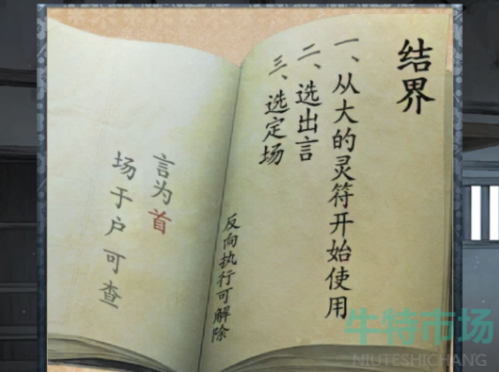 结界
一、从大的灵符开始使用
二、选出言
三、选定场
反向执行可解除
言为首
场于户可查
牛特市场
NIUTESHICHANG